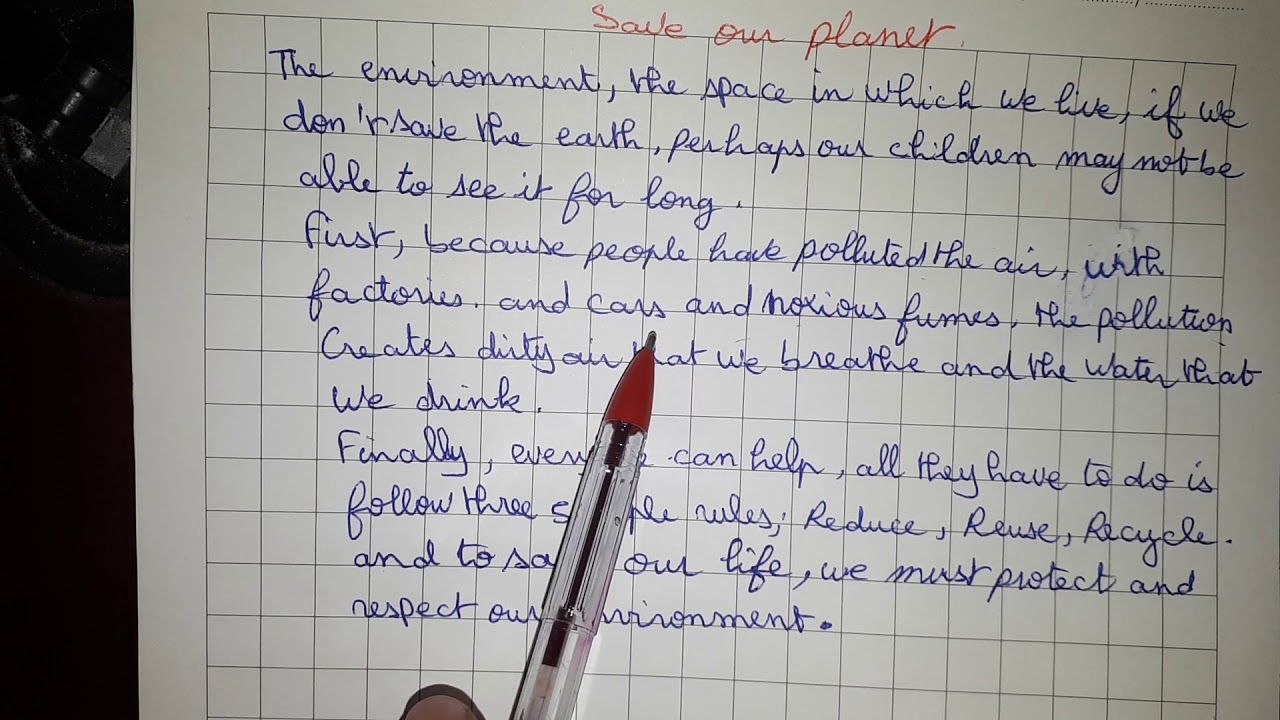 Save our planet.
The environment, the space in which we live, if we
don't save the earth, perhaps our children may not be
able to see it for long.
First, because people have polluted the air, with
factories. and cars and noxious fumes, the pollution
Creates dirty air that we breathe and the water that
we drink.
Finally, can help, all they have to do is
follow three rules; Reduce, Reuse, Recycle.
and to our life, we must protect and
respect our environment.